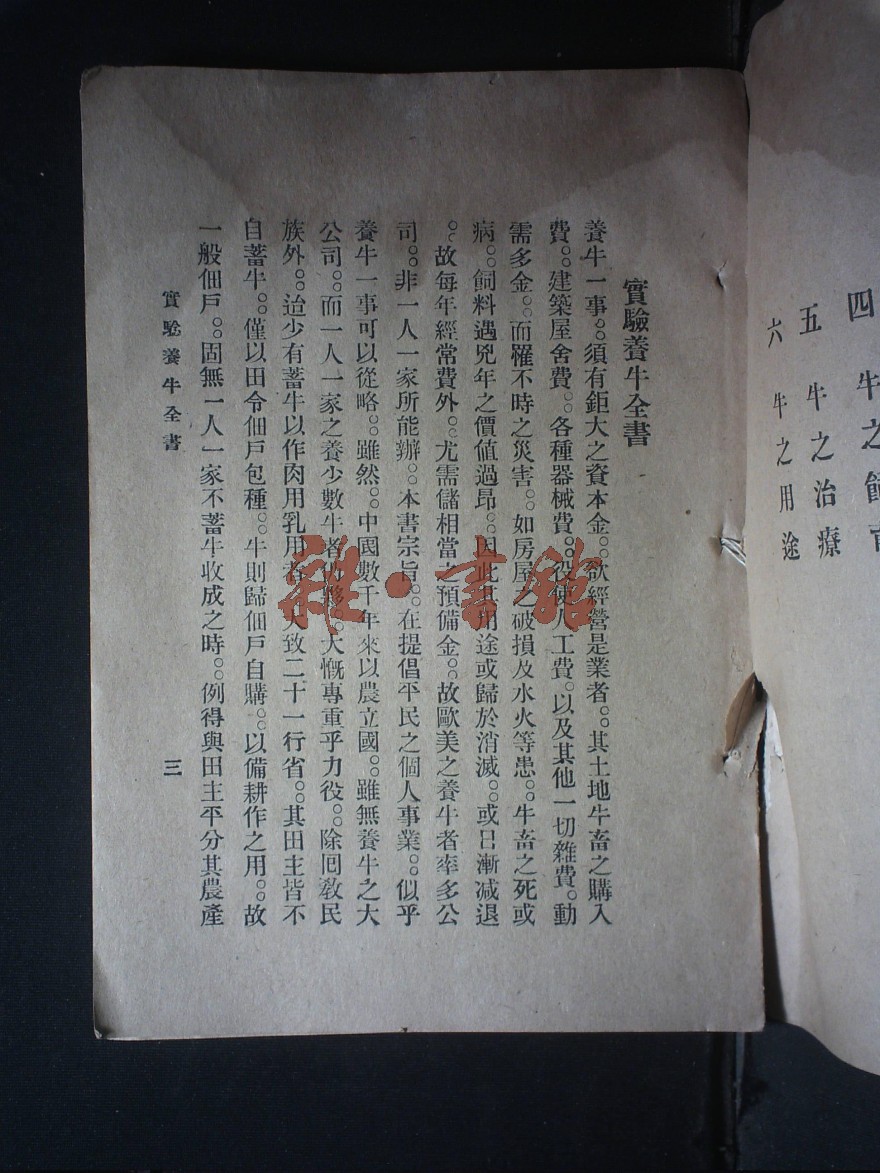 四 牛之飼育
五 牛之治療
六 牛之用途
實驗養牛全書
養牛一事。須有鉅大之資本金。欲經營是業者。其土地牛畜之購入
費。建築屋舍費。各種器械費。役使人工費。以及其他一切雜費。動
需多金。而罹不時之災害。如房屋之破損及水火等患。牛畜之死或
病。飼料遇兇年之價値過昂。因此其用途或歸於消滅。或日漸減退
。故每年經常費外。尤需儲相當之預備金。故歐美之養牛者率多公
司。非一人一家所能辦。本書宗旨。在提倡平民之個人事業。似乎
養牛一事可以從略。雖然。中國數千年來以農立國。雖無養牛之大
公司。而一人一家之養少數牛者 夥。大慨專重乎力役。除囘敎民
族外。迨少有蓄牛以作肉用乳用者。大致二十一行省。其田主皆不
自蓄牛。僅以田令佃戶包種。牛則歸佃戶自購。以備耕作之用。故
一般佃戶。固無一人一家不蓄牛收成之時。例得與田主平分其農產
實驗養牛全書 三
雜·書館